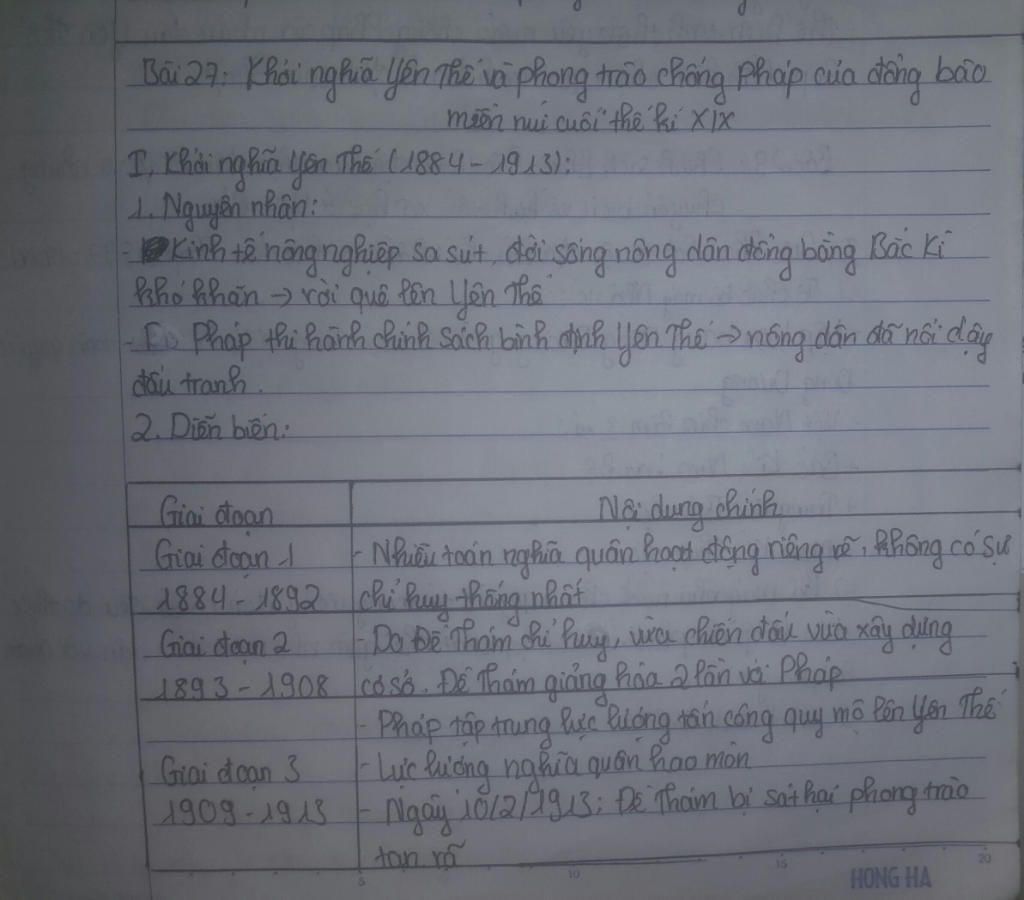 Bài 27: Khởi nghĩa Yên Thế và phong trào chống Pháp của đồng bào
miền núi cuối thế kỉ XIX
I, Khởi nghĩa Yên Thế (1884 - 1913):
1. Nguyên nhân:
- Kinh tế nông nghiệp sa sút, đời sống nông dân đồng bằng Bắc Kì
khó khăn → rời quê lên Yên Thế
- Pháp thi hành chính sách bình định Yên Thế → nông dân đã nổi dậy
đấu tranh.
2. Diễn biến:
Giai đoạn
Nội dung chính
Giai đoạn 1
- Nhiều toán nghĩa quân hoạt động riêng rẽ, không có sự
1884 - 1892
chỉ huy thống nhất
Giai đoạn 2
- Do Đề Thám chỉ huy, vừa chiến đấu vừa xây dựng
1893 - 1908
cơ sở. Đề Thám giảng hòa 2 lần với Pháp
- Pháp tập trung lực lượng tấn công quy mô lên Yên Thế
Giai đoạn 3
- Lực lượng nghĩa quân hao mòn
1909 - 1913
- Ngày 10/2/1913; Đề Thám bị sát hại phong trào
tan rã
5 10 15 20
HONG HA